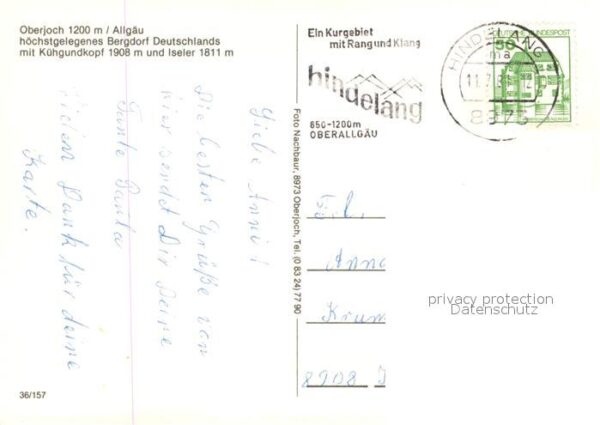 Oberjoch 1200 m / Allgäu
höchstgelegenes Bergdorf Deutschlands
mit Kühgundkopf 1908 m und Iseler 1811 m
Ein Kurgebiet
mit Rang und Klang
hindelang
850-1200m
OBERALLGÄU
HINDELANG
ma
8973
DEUTSCHE BUNDESPOST
50
Liebe Anni!
Die besten Grüße von
hier sendet Dir Deine
Tante
Vielen Dank für deine
Karte.
Foto Nachbaur, 8973 Oberjoch, Tel. (0 83 24) 77 90
Anna
Krum
8908
privacy protection
Datenschutz
36/157